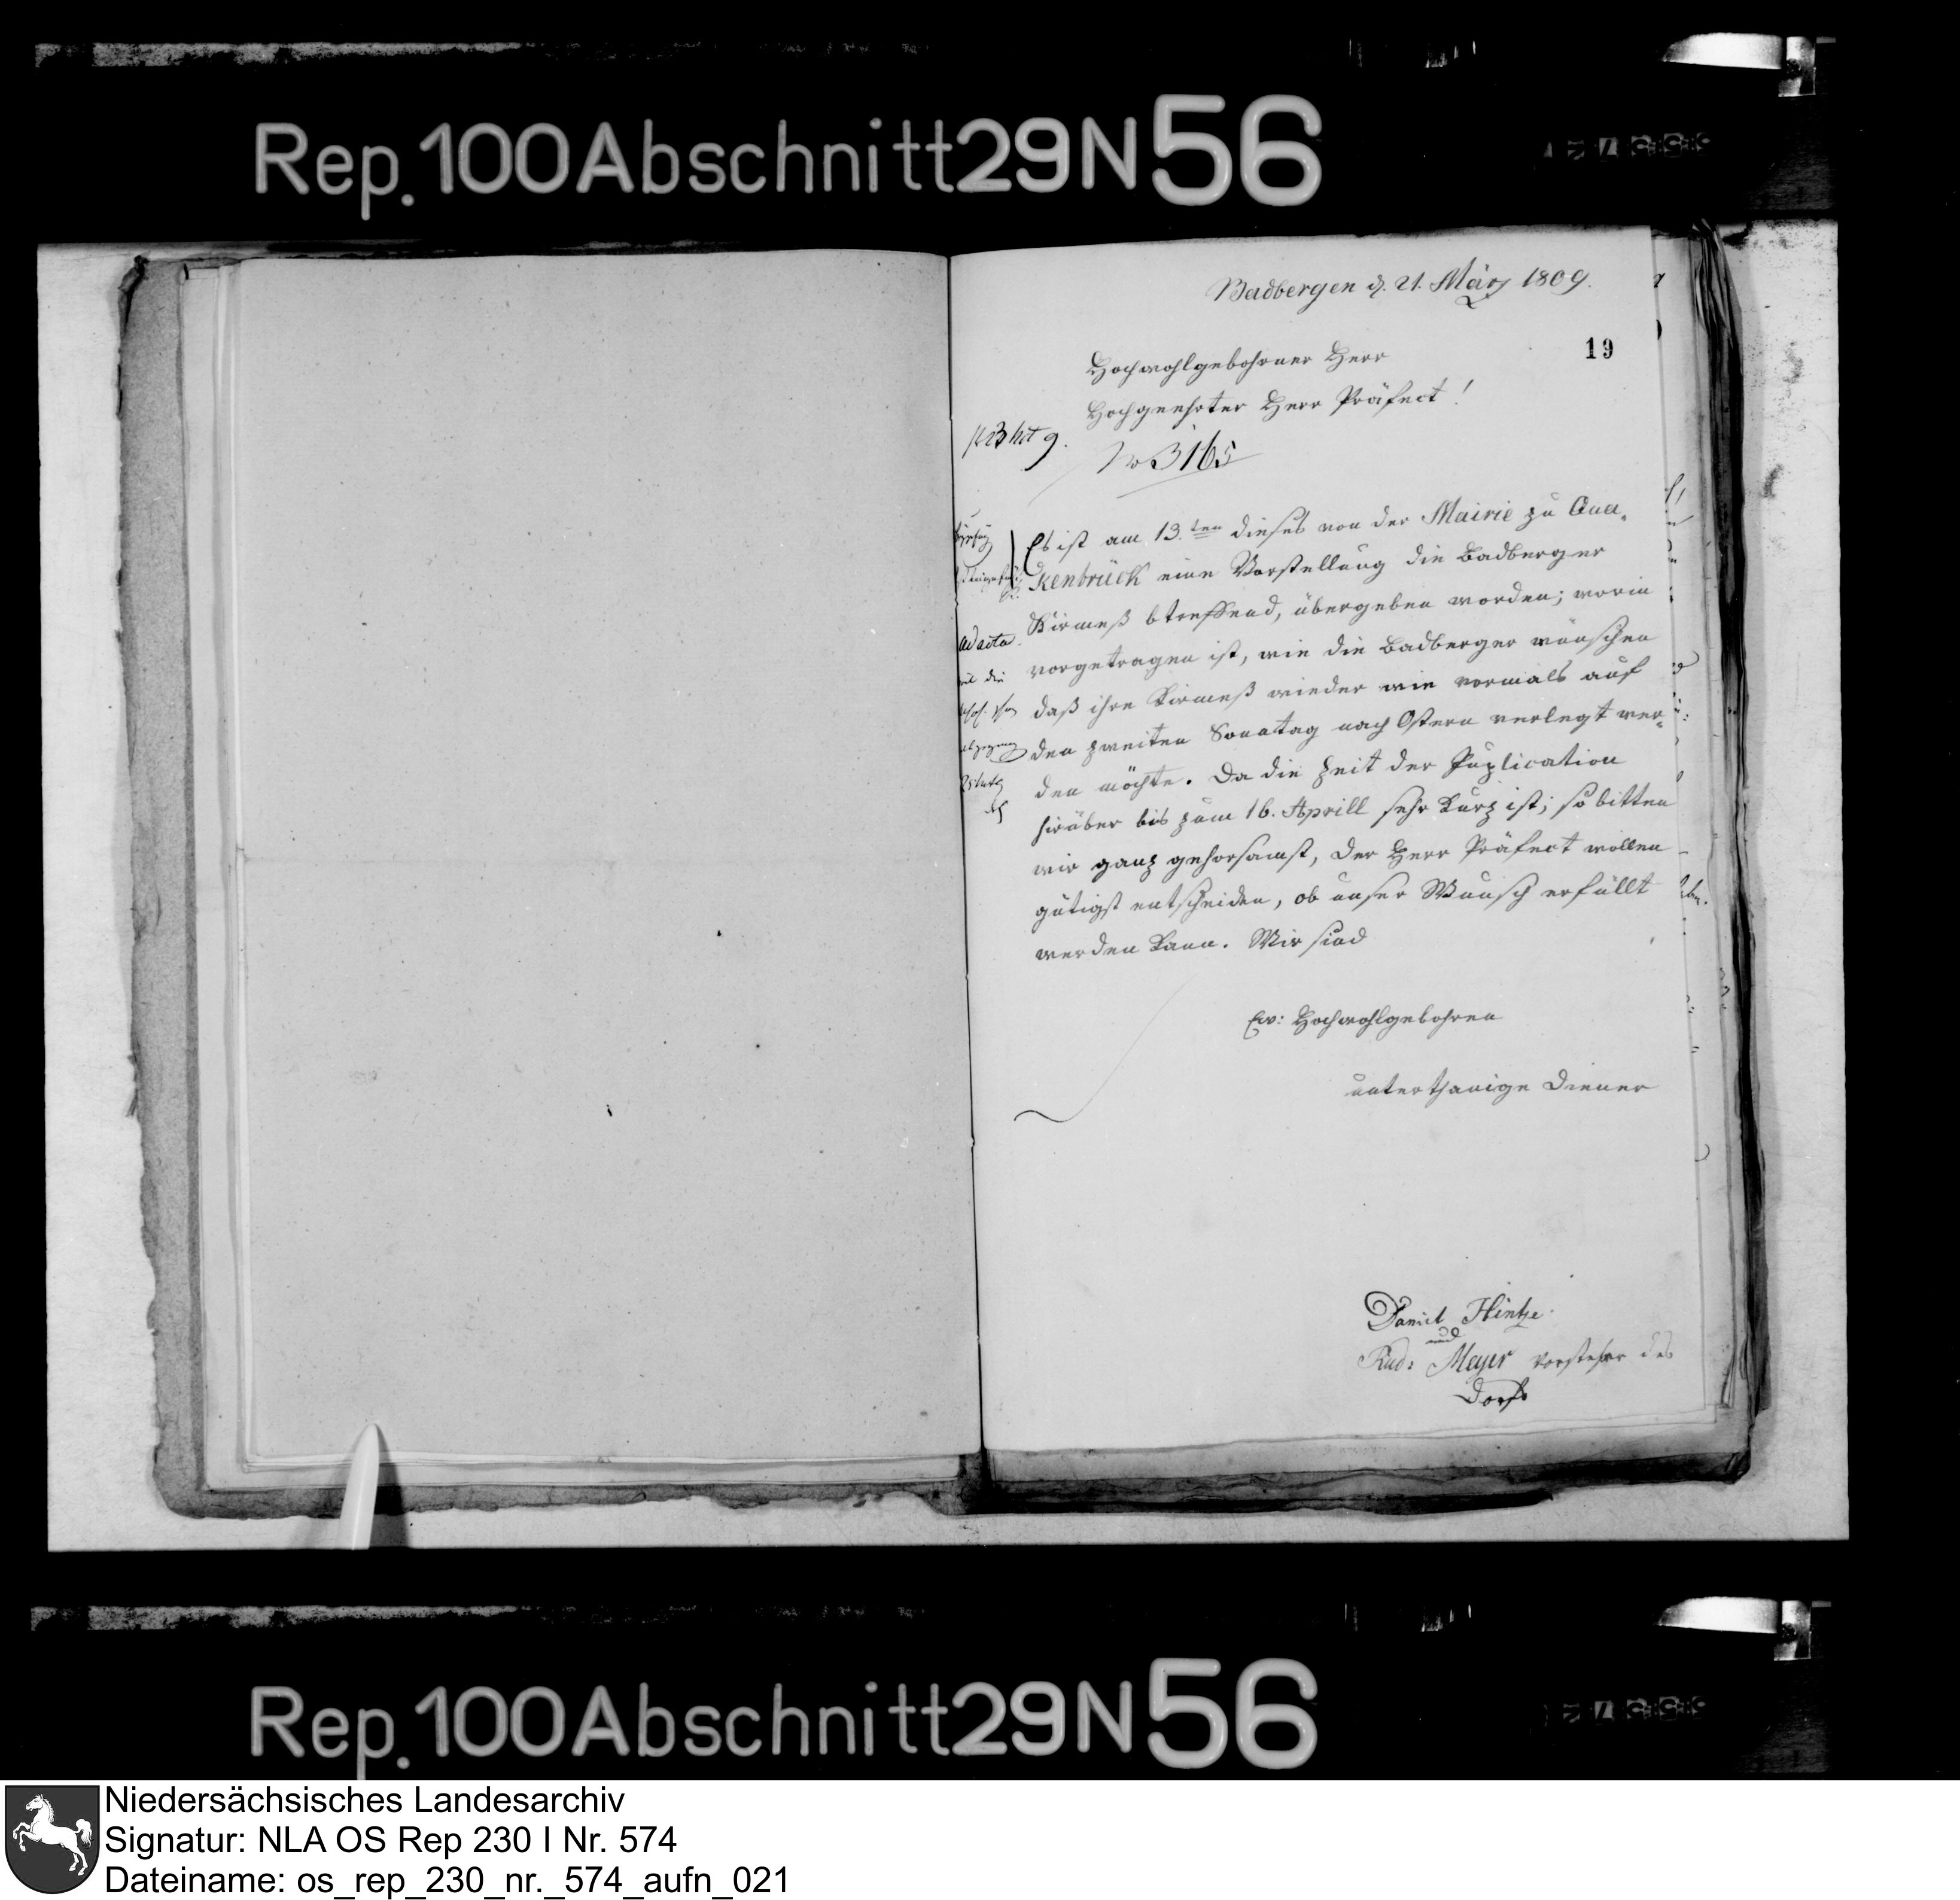 Rep. 100 Abschnitt 29 N 56
Badbergen d. 21. März 1809.
19
Hochwohlgebohrner Herr
Hochgeehrter Herr Präfect!
No 3165
Es ist am 13.ten dieses von der Mairie zu Qua-
kenbrück eine Vorstellung die Badberger
Kirmeß btreffend, übergeben worden; worin
vorgetragen ist, wie die Badberger wünschen
daß ihre Kirmeß wieder wie vormals auf
den zweiten Sonntag nach Ostern verlegt wer=
den möchte. Da die Zeit der Puplication
hirüber bis zum 16. Aprill sehr kurz ist; so bitten
wir ganz gehorsamst, der Herr Präfect wollen
gütigst entscheiden, ob unser Wunsch erfüllt
werden kann. Wir sind
ad acta.
Ew: Hochwohlgebohren
unterthanige Diener
Daniel Hintze.
und
Rud: Meyer Vorsteher des
Dorfs
Rep. 100 Abschnitt 29 N 56
Niedersächsisches Landesarchiv
Signatur: NLA OS Rep 230 I Nr. 574
Dateiname: os_rep_230_nr._574_aufn_021